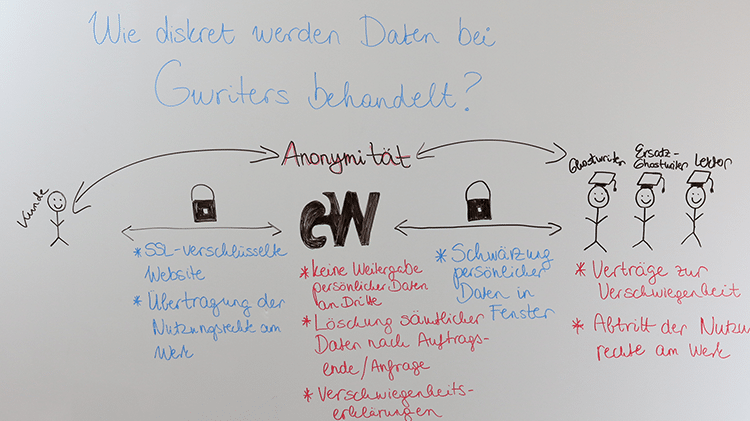 Wie diskret werden Daten bei
Gwriters behandelt?
Anonymität
Kunde
Ghostwriter
Ersatz-
Ghostwriter
Lektor
GW
* SSL-verschlüsselte
Website
* Übertragung der
Nutzungsrechte am
Werk
* keine Weitergabe
persönlicher Daten
an Dritte
* Löschung sämtlicher
Daten nach Auftrags-
ende/Anfrage
* Verschwiegenheits-
erklärungen
* Schwärzung
persönlicher
Daten in
Fenster
* Verträge zur
Verschwiegenheit
* Abtritt der Nutzu
rechte am Werk